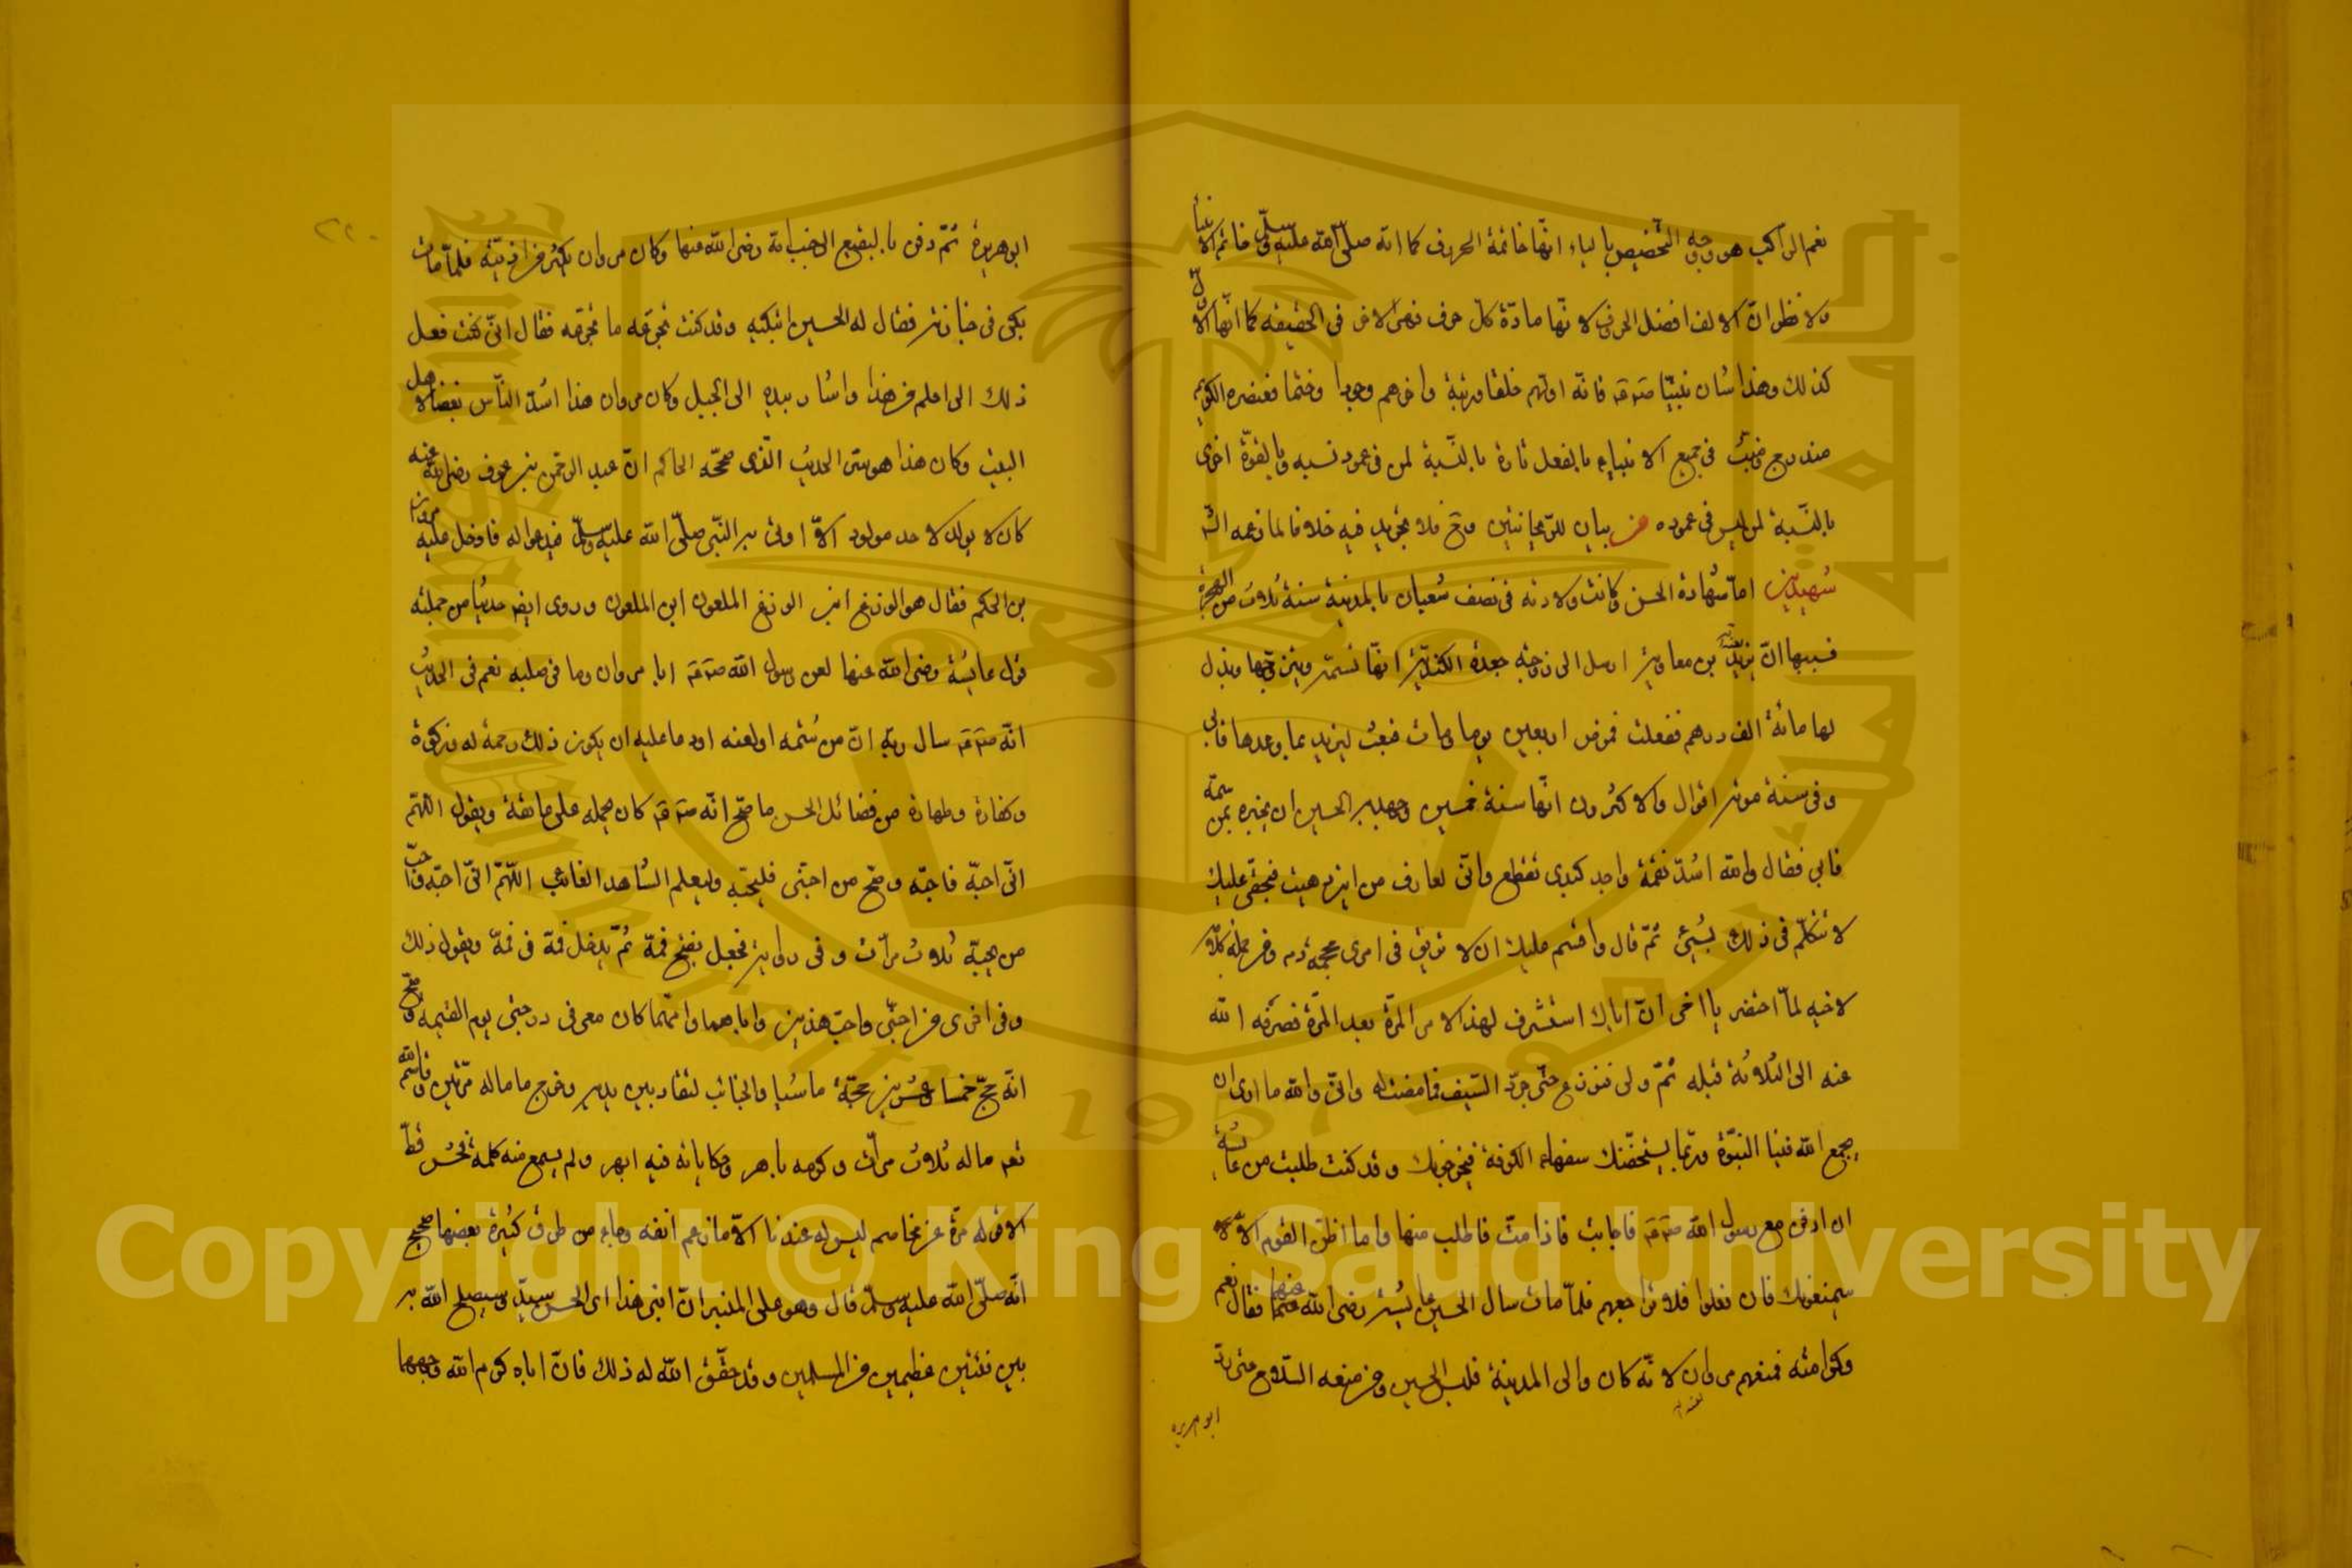 نعم الراكب هو ووجه التخصيص بالياء انها خاتمة الحروف كما انه صلى الله عليه وسلم خاتم الانبيا
ولا تظن ان الالف افضل الحروف لانها مادة كل حرف فهى الاخر فى الحقيقه كما انها الاول
كذلك وهذا شان نبينا صم فانه اولهم خلقا ورتبة واخرهم وجودا وختما فعنصره الكريم
مندرج فى جميع الانبياء بالفعل تارة بالنسبة لمن فى عمود نسبه وبالقوة اخرى
بالنسبة لمن ليس فى عموده من بيان للريحانتين وح فلا تجريد فيه خلافا لما زعمه الش
شهيدين اما شهادة الحسن وكانت ولادته فى نصف شعبان بالمدينة سنة ثلاث من الهجرة
فسببها ان يزيد بن معاوية ارسل الى زوجته جعدة الكندية انها تسمه ويتزوجها وبذل
لها مائة الف درهم ففعلت فمرض اربعين يوما ومات فبعثت ليزيد بما وعدها فابى
وفى سنة موته اقوال والاكثرون انها سنة خمسين وجهد به الحسين ان يخبره بمن سمه
فابى فقال والله اشد نقمة واجد كبدى تقطع وانى لعارف من اين دهيت فبحقى عليك
لا تتكلم فى ذلك بشئ ثم قال واقسم عليك ان لا تريق فى امرى محجمة دم ومن جملة كلامه
لاخيه لما احتضر يا اخى ان اباك استشرف لهذا الامر المرة بعد المرة فصرفه الله
عنه الى الثلاثة قبله ثم ولى فنوزع حتى جرد السيف فما صفت له وانى والله ما ارى ان
يجمع الله فينا النبوة وربما يستخفنك سفهاء الكوفة فيخرجونك وقد كنت طلبت من عائشة
ان ادفن مع رسول الله صم فاجابت فاذا مت فاطلب منها واما اظن القوم الا
سيمنعونك فان فعلوا فلا تراجعهم فلما مات سال الحسين عايشة رضى الله عنها فقال نعم
وكرامته فمنعهم مروان لانه كان والى المدينة فلبس الحسين ومن معه السلاح حتى رد
ابو هريره
ابو هريرة ثم دفن بالبقيع الى جنب امه رضى الله عنها وكان مروان يكثر من اذيته فلما مات
بكى فى جنازته فقال له الحسين اتبكيه وقد كنت تجرعه ما تجرعه فقال انى كنت فعل
ذلك الى احلم من هذا واشار بيده الى الجبل وكان مروان هذا اشد الناس بغضا لاهل
البيت وكان هذا هو سر الحديث الذى صححه الحاكم ان عبد الرحمن بن عوف رضى الله عنه
كان لا يولد لاحد مولود الا اوتى به النبى صلى الله عليه وسلم فيدعو له فادخل عليه مروان
بن الحكم فقال هو الوزغ ابن الوزغ الملعون ابن الملعون وروى ايضا حديثا من جملته
قول عايشة رضى الله عنها لعن رسول الله صم ابا مروان وما فى صلبه نعم فى الحديث
انه صم سال ربه ان من شتمه او لعنه او دعا عليه ان يكون ذلك رحمة له وزكوة
وكفارة وطهارة من فضائل الحسن ما صح انه صم كان يحمله على عاتقه ويقول اللهم
انى احبه فاحبه وصح من احبنى فليحبه وليعلم الشاهد الغائب اللهم انى احبه واحب
من يحبه ثلاث مرات وفى رواية فجعل يفتح فمه ثم يدخل فمه فى فمه ويقول ذلك
وفى اخرى من احبنى واحب هذين واباهما وامهما كان معى فى درجتى يوم القيمه وصح
انه حج خمسا وعشرين حجة ماشيا والجنائب لتقاد بين يديه وخرج ماماله مرتين وقاسم الله
نعم ماله ثلاث مرات وكرمه باهر وحكاياته فيه ابهر ولم يسمع منه كلمة فحش قط
الا قوله مرة عن مخاصم ليس له عندنا الا ما زعم انفه وجاء من طرق كثيرة بعضها صحيح
انه صلى الله عليه وسلم قال وهو على المنبر ان ابنى هذا اى الحسن سيد وسيصلح الله به
بين فئتين عظيمين من المسلمين وقد حقق الله له ذلك فان اباه كرم الله وجهه لما
Copyright © King Saud University
1957